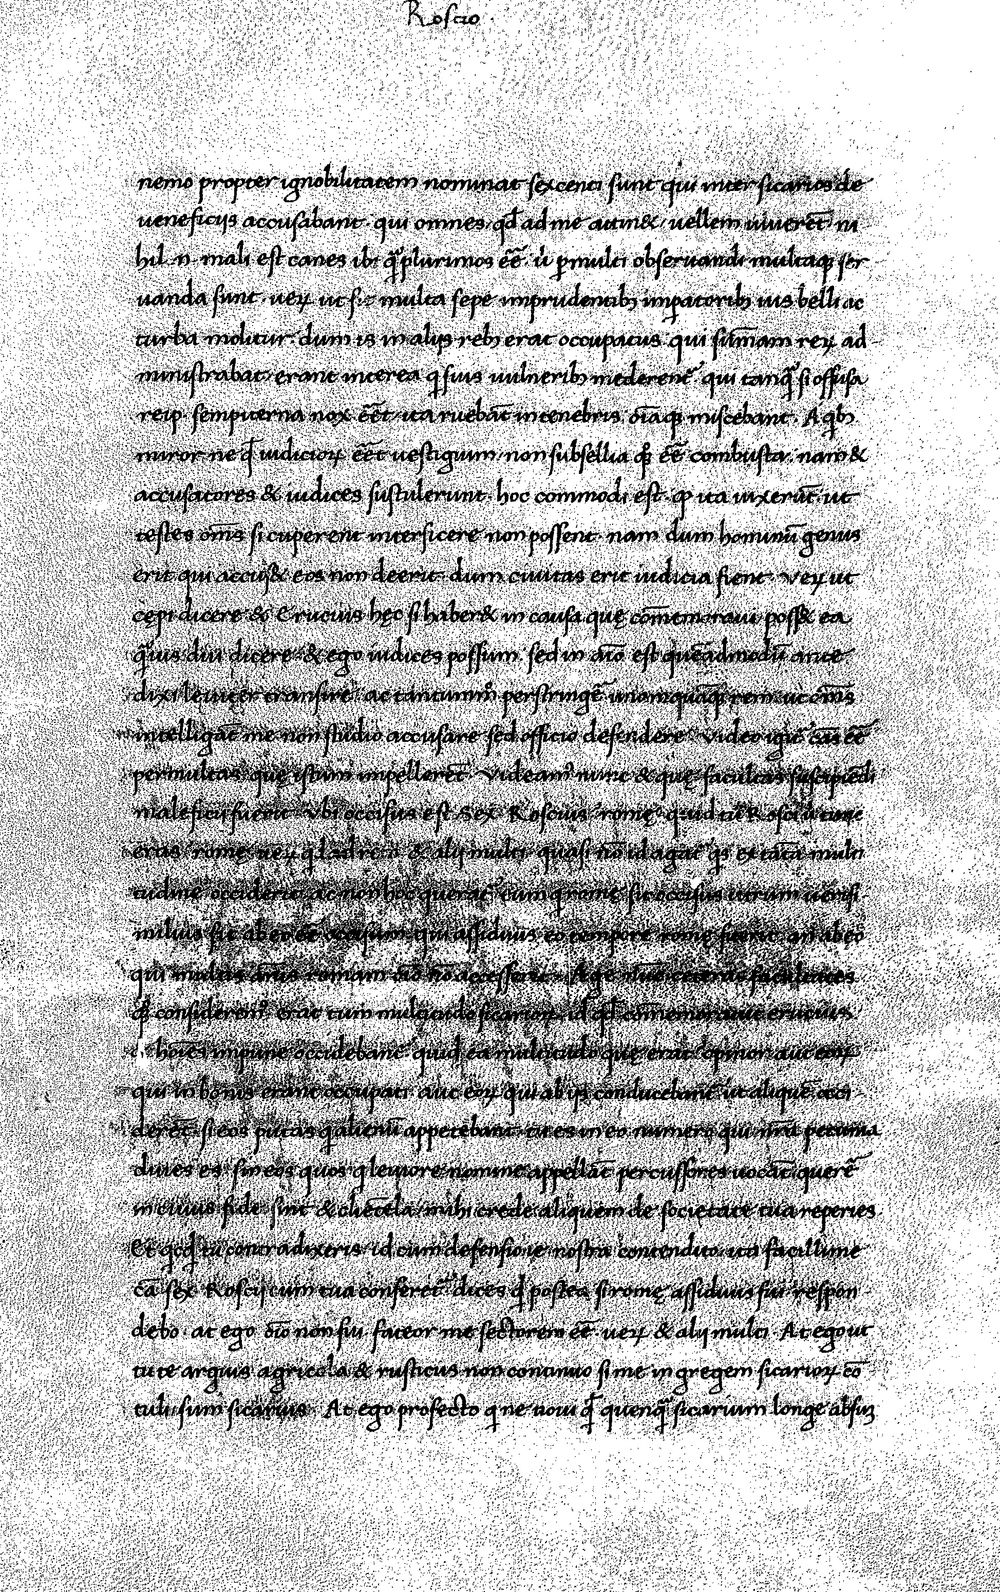 Roscio.
nemo propter ignobilitatem nominat sexcenti sunt qui inter sicarios de
ueneficijs accusabant. qui omnes qđ ad me attin& / uellem uiuerēt ni
hil .n. mali est canes ibi q̄plurimos eē̄. ubi permulti obseruandi multaq; ser
uanda sunt. ueꝝ ut fit multa sepe imprudentibȝ imꝑatoribȝ uis belli ac
turba molitur. dum is in alijs rebȝ erat occupatus. qui sūmam reꝝ ad-
ministrabat / erant interea q suis uulneribȝ mederent᷑. qui tanq̄ si offusa
reip. sempiterna nox eēt / ita ruebāt in tenebris oīaq; miscebant. A qbȝ
miror ne qđ iudicioꝝ eēt uestigium / non subsellia qꝫ eē combusta. nam &
accusatores & iudices sustulerunt. hoc commodi est. ꝙ ita uixerūt. ut
testes oms̄ si cuperent interficere non possent. nam dum hominū genus
erit qui accus& eos non deerit. dum ciuitas erit iudicia fient. Veꝝ ut
cepi dicere & Erucius hęc si haber& in causa quę cōmemoraui poss& ea
q̄uis diu dicere & ego iudices possum. sed in aīo est quēadmodū ante
dixi leuiter transire ac tantummͦ perstringē̄ unamquāq; rem. ut oms̄
intelligāt me non studio accusare sed officio defendere. Video igit᷑ cās eē
permultas quę istum impellerēt. Videam᷒ nunc & quę facultas suscipiēdi
maleficij fuerit. Vbi occisus est Sex. Roscius romę. quid tu Rosci ubi tunc
eras romę. ueꝝ qd ad rem & alij multi. quasi nō id agat᷑ qs ex tāta multi
tudine occiderit. ac non hoc querat᷑ eum q romę sit occisus utrum uerisi
milius sit ab eo eē occisum qui assiduus eo tempore romę fuerit. an ab eo
qui multis annis romam oīo nō accesserit. Age nūc ceteras facultates
qꝫ consideremꝰ. erat tum multitudo sicarioꝝ. id qđ cōmemorauit erucius
& hoīes impune occidebant᷑. quid ea multitudo quę erat. opinor aut eoꝝ
qui in bonis erant occupati. aut eoꝝ qui ab ijs conducebant᷑ ut aliquē occi-
derēt. si eos putas q alienū appetebant. tu es in eo numero qui nrā pecunia
diues es. sin eos quos q leuiore nomine appellāt percussores uocāt. querē
in cuius fide sint & clientela / mihi crede aliquem de societate tua reperies
Et qcqd tu contra dixeris. id cum defensione nostra contendito. ita facillime
cā sex. Roscij cum tua conferet᷑. dices qđ postea si romę assiduus fui. respon-
debo. at ego oīo non fui. fateor me sectorem eē. ueꝝ & alij multi. At ego ut
tute arguis agricola & rusticus non continuo si me in gregem sicarioꝝ cō
tuli. sum sicarius. At ego profecto q ne noui qđ quenq̄ sicarium longe absū